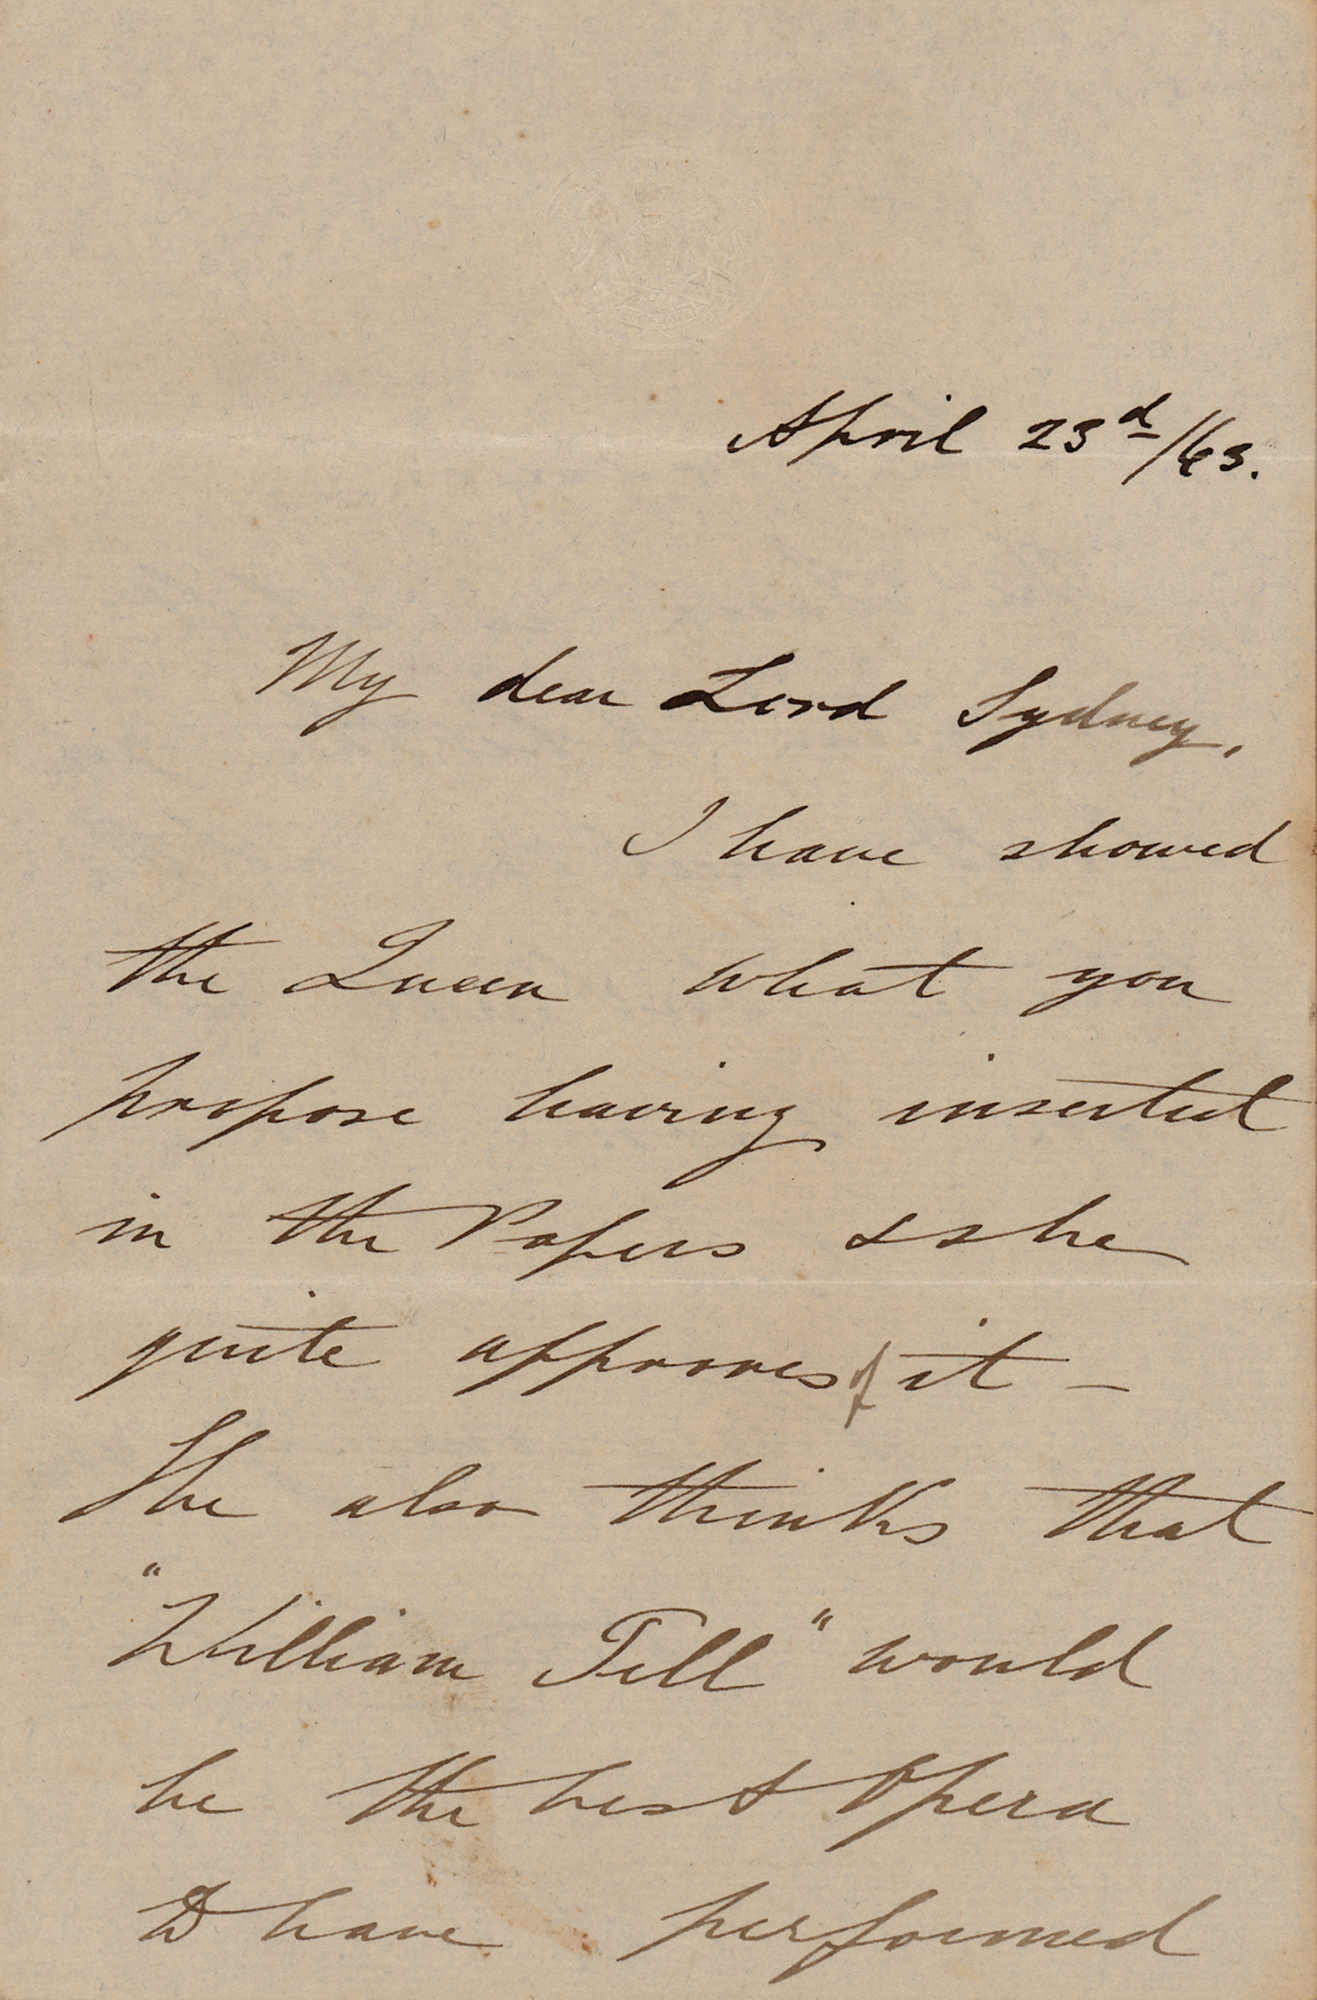 April 23d/63.
My dear Lord Sydney,
I have showed
the Queen what you
propose having inserted
in the Papers & she
quite approves of it –
She also thinks that
"William Tell" would
be the best Opera
to have performed